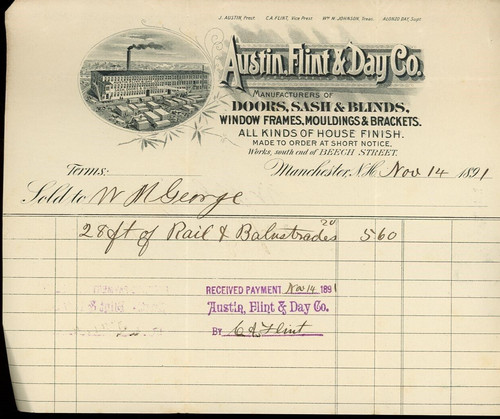 J. AUSTIN, Prest. C.A. FLINT, Vice Prest. Wm H. JOHNSON, Treas. ALONZO DAY, Supt.
Austin, Flint & Day Co.
MANUFACTURERS OF
DOORS, SASH & BLINDS,
WINDOW FRAMES, MOULDINGS & BRACKETS.
ALL KINDS OF HOUSE FINISH.
MADE TO ORDER AT SHORT NOTICE.
Works, south end of BEECH STREET.
Terms: Manchester, N.H. Nov 14 1891
Sold to W M George
28 ft of Rail & Balustrades 20 5 60
RECEIVED PAYMENT Nov 14 1891
Austin, Flint & Day Co.
BY C A Flint